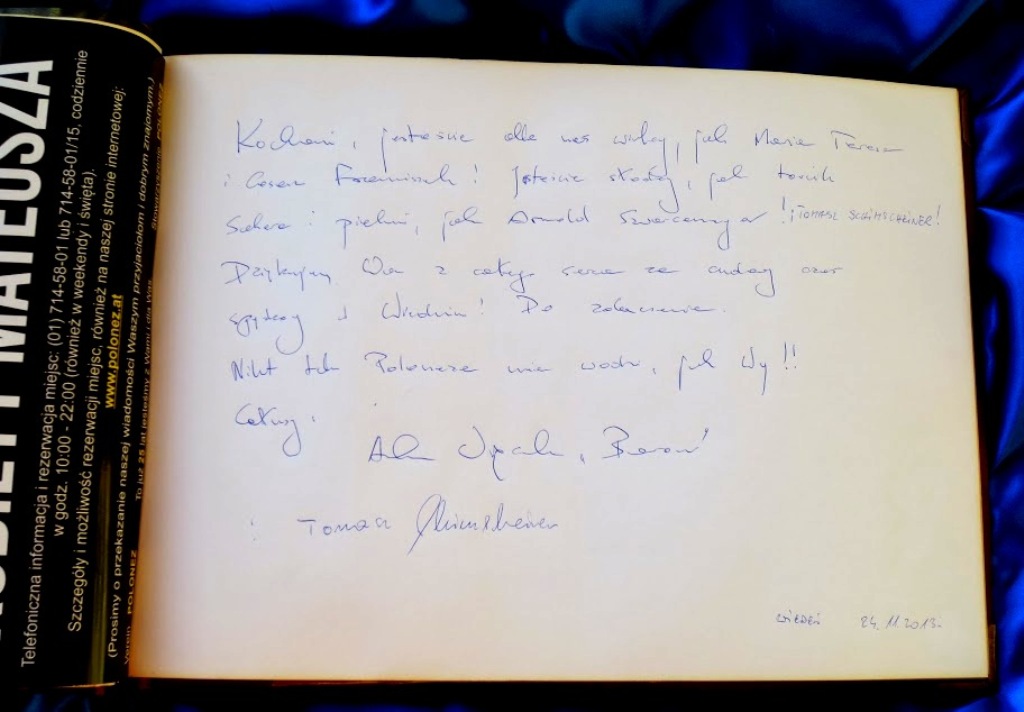 MATEUSZA
Telefoniczna informacja i rezerwacja miejsc: (01) 714-58-01 lub 714-58-01/15, codziennie
w godz. 10:00 - 22:00 (również w weekendy i święta).
Szczegóły i możliwość rezerwacji miejsc, również na naszej stronie internetowej:
www.polonez.at
(Prosimy o przekazanie naszej wiadomości Waszym przyjaciołom i dobrym znajomym.)
To już 25 lat jesteśmy z Wami i dla Was
Verein POLONEZ
Kochani, jesteście dla nas wielcy, jak Maria Teresa
i Cesarz Franciszek! Jesteście słodcy, jak torcik
Sachera i piękni, jak Arnold ! ¡TOMASZ SCHIMSCHEINER!
Dziękujemy Wam z całego serca za cudowny czas
spędzony w Wiedniu! Do zobaczenia.
Nikt tak Poloneza nie wodzi, jak Wy!!
Całusy,
i Tomasz Schimscheiner
WIEDEŃ 24.11.2013r.